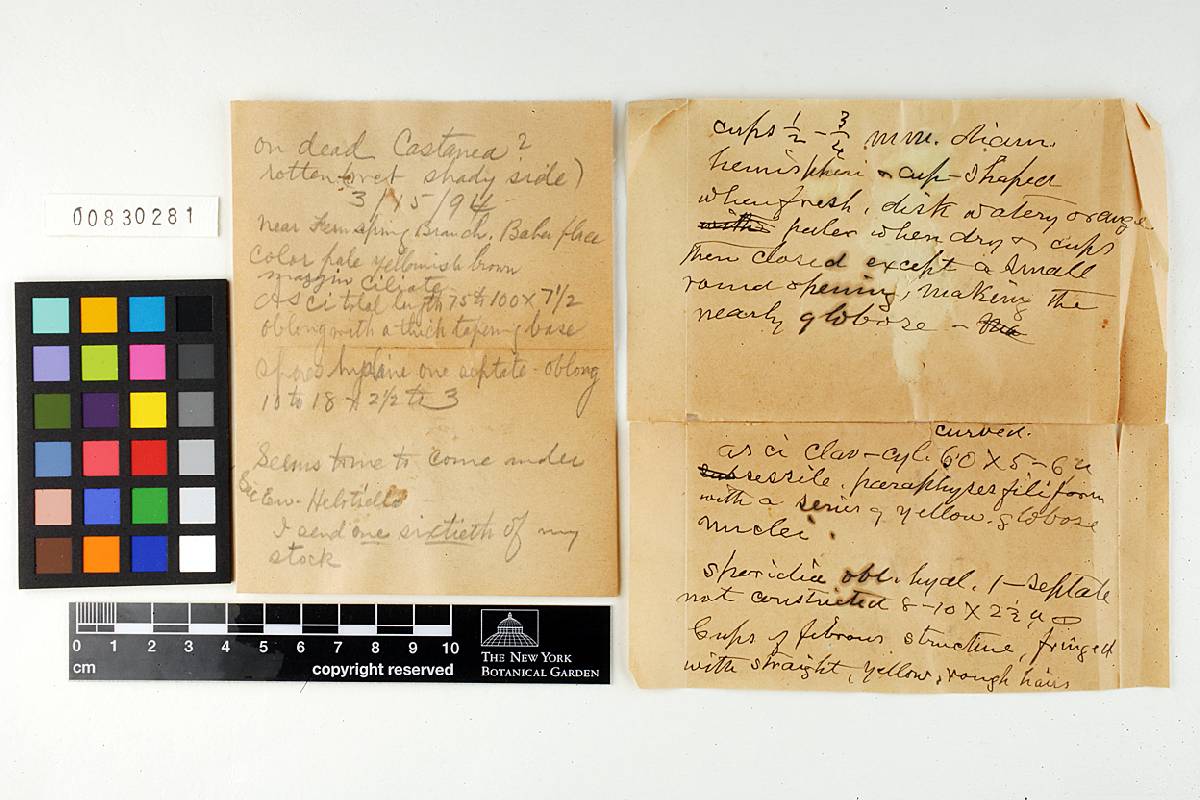 00830281
on dead Castanea?
rotten wet shady side)
3/15/94
near Branch. Baker place
color pale yellowish brown
margin ciliate
Asci total length 75 to 100 X 7 1/2
oblong with a thick tapering base
spores hyaline one septate - oblong
10 to 18 X 2 1/2 to 3
Seems to me to come under
I send one sixtieth of my
stock
cups 1/2 - 3/4 mm. diam.
hemispheri & cup-shaped
when fresh, disk watery orange
with paler when dry & cups
then closed except a small
round opening, making the
nearly globose - the
curved.
asci clav-cyl. 60 X 5-6 µ
sub sessile. paraphyses filiform
with a series of yellow. globose
nuclei.
sporidia obl. hyal. 1-septate
not constricted 8-10 X 2 1/2 µ
Cups of fibrous structure, fringed
with straight, yellow, rough hairs
0 1 2 3 4 5 6 7 8 9 10
cm
copyright reserved
THE NEW YORK
BOTANICAL GARDEN